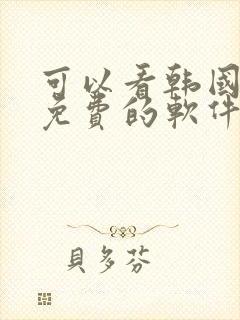 可以看韩國
免費的軟件
貝多芬